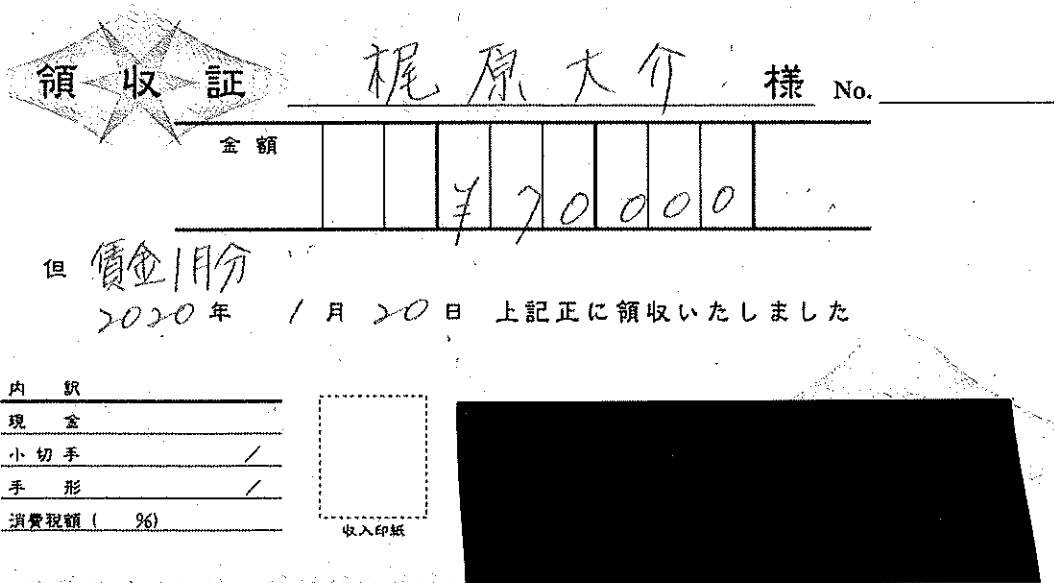 領収証 梶原大介 様 No.
金額 ¥70000
但 賃金1月分
2020年 1月20日 上記正に領収いたしました
内訳
現金
小切手 /
手形 /
消費税額( %)
収入印紙